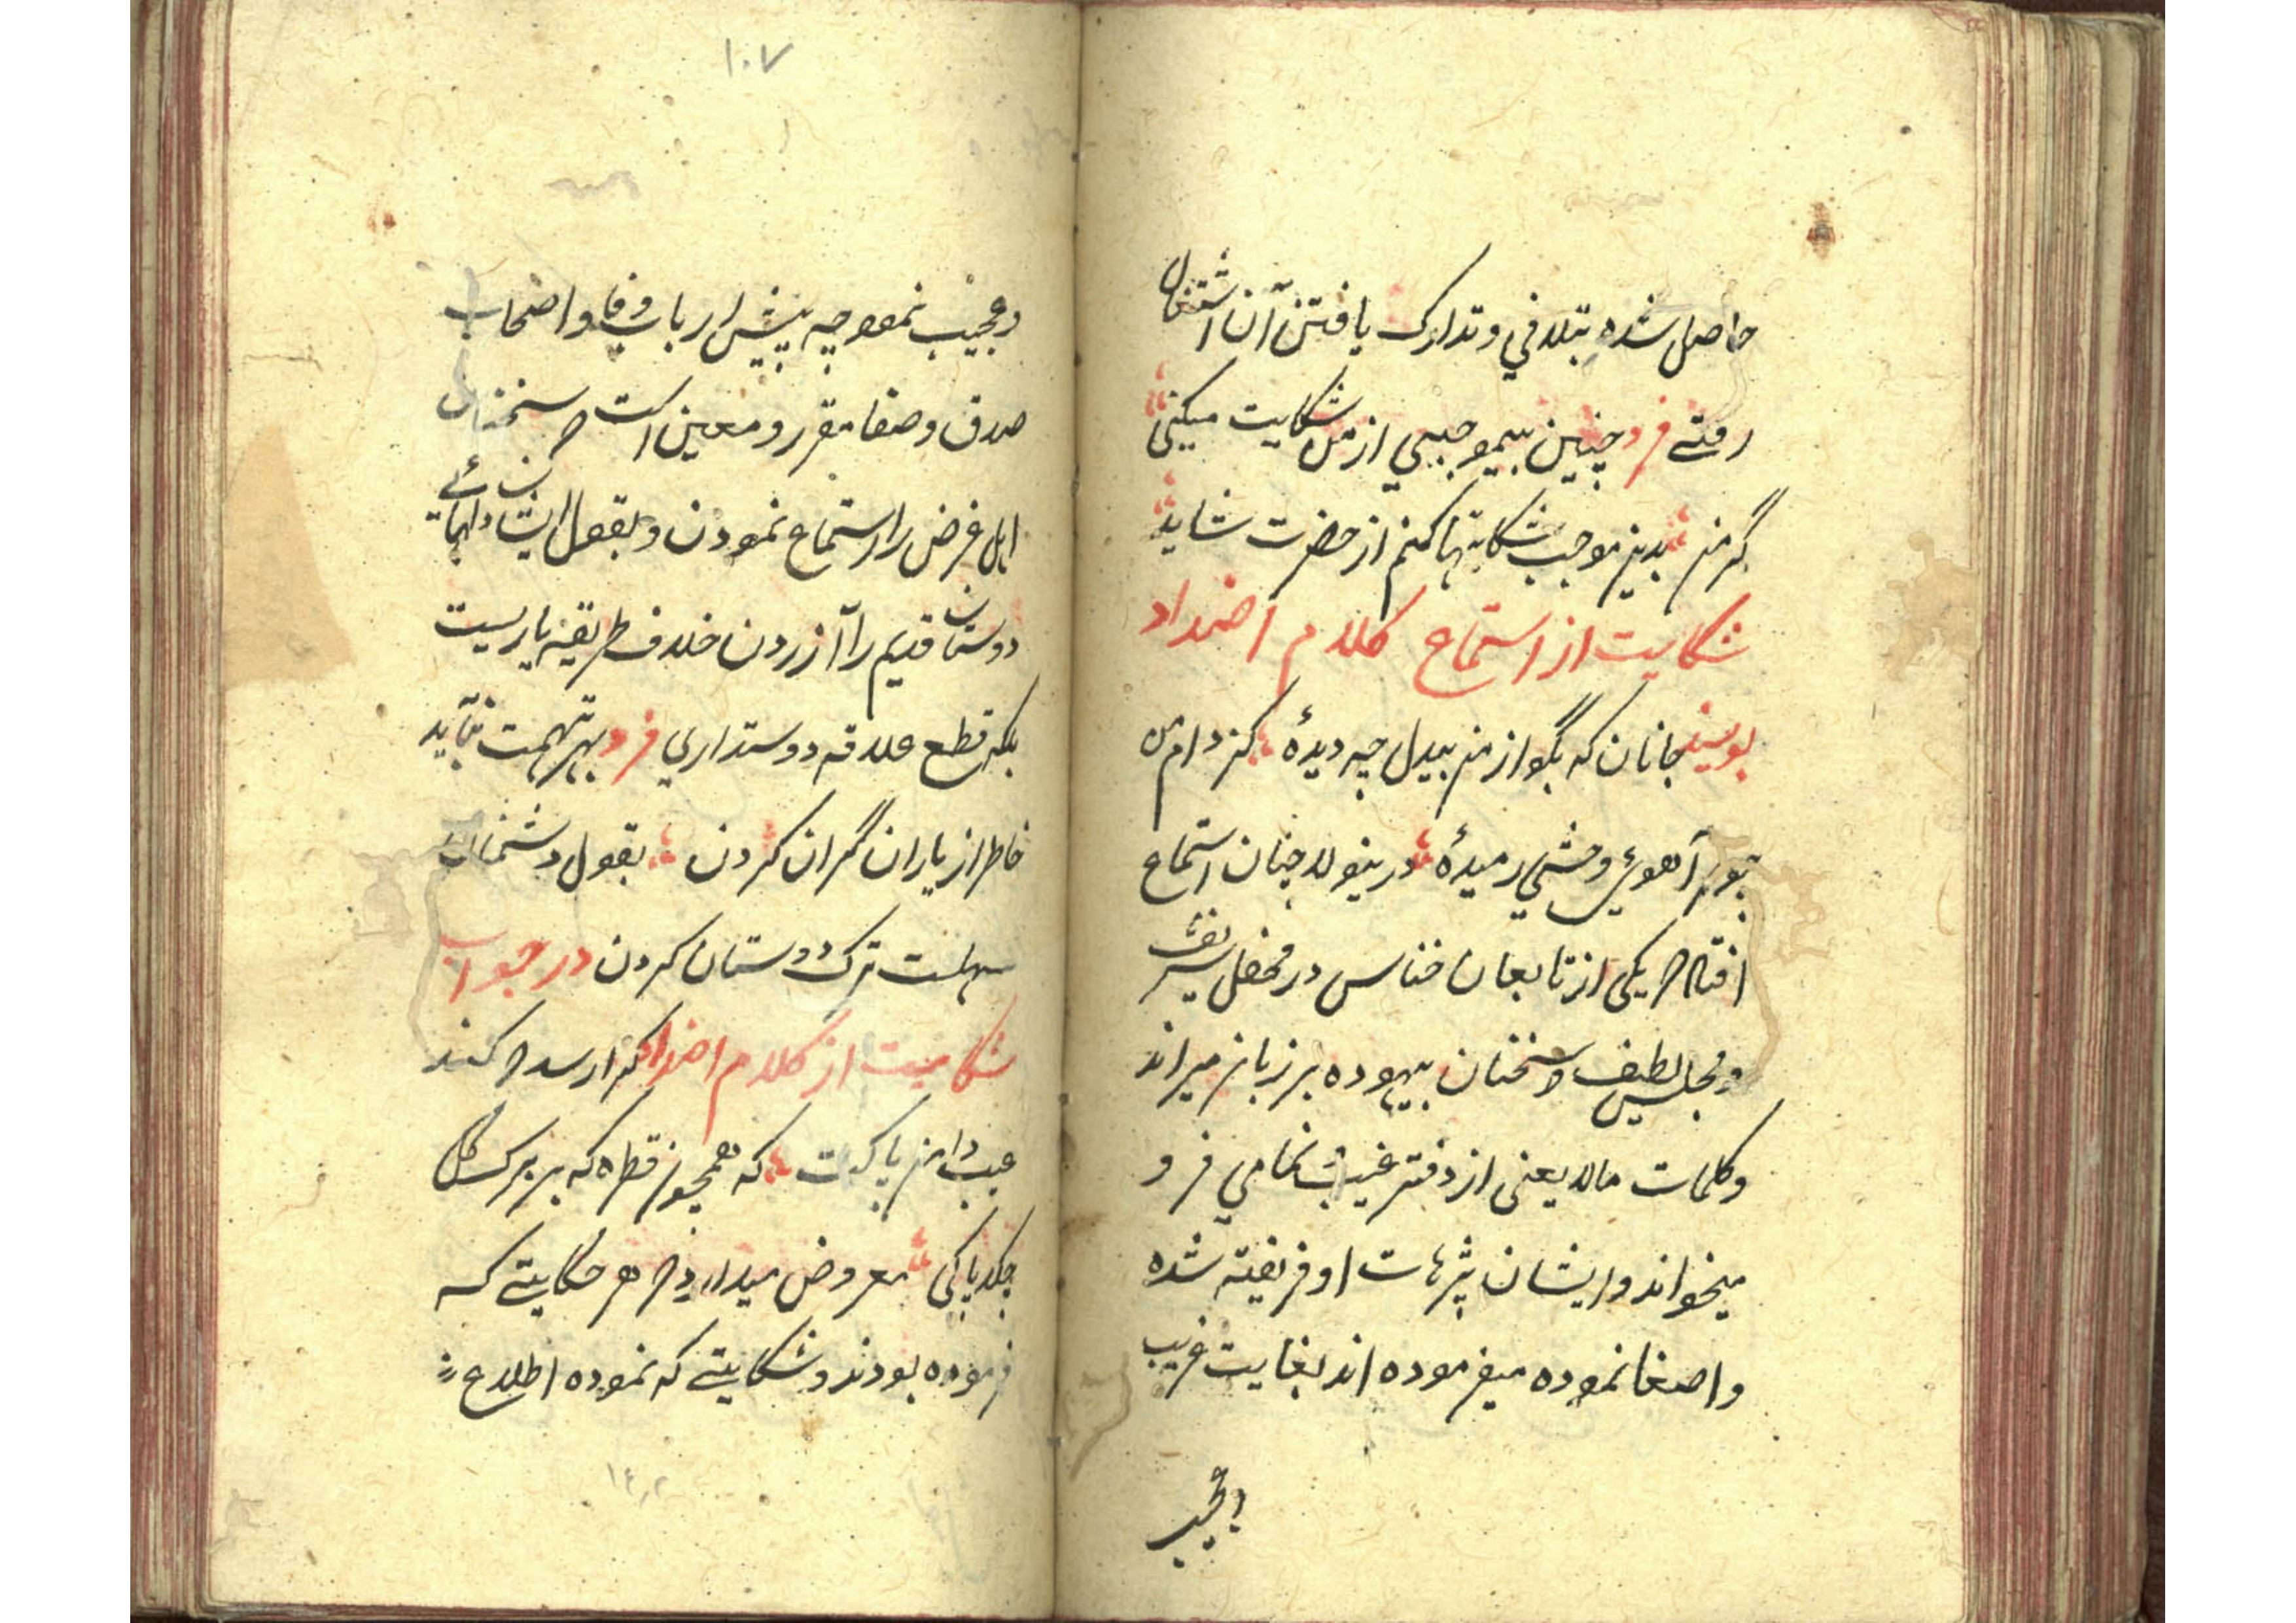 حاصل شده بتلافي و تدارک يافتن آن اشتغال
رفتے فرد چنين بيموجبي از من شکايت ميکنی
گر من بدين موجب شکايتها کنم از حضرت شايد
شکايت از استماع کلام اضداد
بويند جانان که بگو از من بيدل چه ديدهٔ کز دام من
چو آهوی وحشي رميدهٔ درينولا چنان استماع
افتاد که يکی از تابعان خناس در محفل شريف
و مجلس لطيف سخنان بيهوده بر زبان ميراند
و کلمات مالايعنی از دفتر غيبت نمامي فرو
ميخواند و ايشان بترهات او فريفته شده
و اصغا نموده ميفرموده اند بغايت غريب
و عجيب
۱۰۷
و عجيب نمود چه پيش ارباب وفا و اصحاب
صدق و صفا مقرر و معين است که سخنان
اهل غرض را استماع نمودن و بقول ايشان
دوستان قديم را آزردن خلاف طريقه ياريست
بلکه قطع علاقه دوستداري فرد بهر تهمت نبايد
خاطر از ياران گران کردن بقول دشمنان
سهلست ترک دوستان کردن در جواب
شکايت از کلام اضداد کرا رسد که کند
عيب دامن پاکت که همچو قطره که بر برگ گل
چکد پاکی معروض ميدارد که هر حکايتے که
فرموده بودند و شکايتے که نموده اطلاع